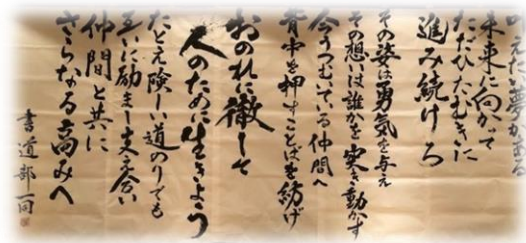 叶えたい夢がある
未来に向かって
ただひたむきに
進み続けろ
その姿は勇気を与え
その想いは誰かを突き動かす
今うつむいている仲間へ
背中を押すことばを紡げ
おのれに徹して
人のために生きよう
たとえ険しい道のりでも
互いに励まし支え合い
仲間と共に
さらなる高みへ
書道部一同